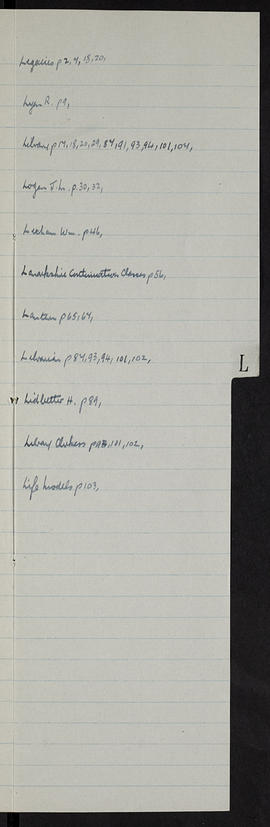 Legacies p 2, 4, 18, 20,
Lyon R. p 9,
Library p 14, 18, 20, 29, 84, 91, 93, 94, 101, 104,
Logan J. L. p. 30, 32,
Wm. p 46,
Lanarkshire Continuation Classes p 56,
p 65, 67,
Librarian p 84, 93, 94, 101, 102,
L
Lidbetter H. p 89,
Library 101, 102,
Life Models p 103,